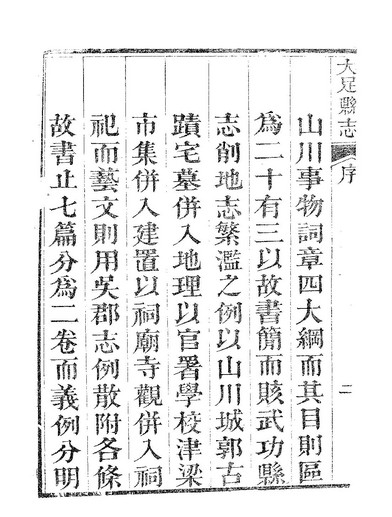 大足縣志
序
二
山川事物詞章四大綱而其目則區
爲二十有三以故書簡而賅武功縣
志削地志繁濫之例以山川城郭古
蹟宅墓併入地理以官署學校津梁
市集併入建置以祠廟寺觀併入祠
祀而藝文則用吳郡志例散附各條
故書止七篇分爲二卷而義例分明